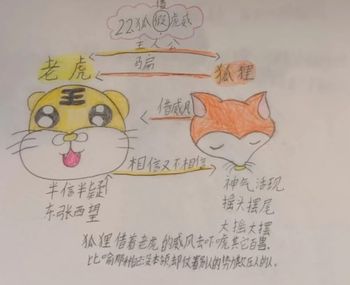 借
22.狐假虎威
主人公
老虎
骗
狐狸
王
借威风
相信又不相信
半信半疑
东张西望
神气活现
摇头摆尾
大摇大摆
狐狸借着老虎的威风去吓唬其它百兽。
比喻那种没本领却仗着别人的势力欺压人的人。